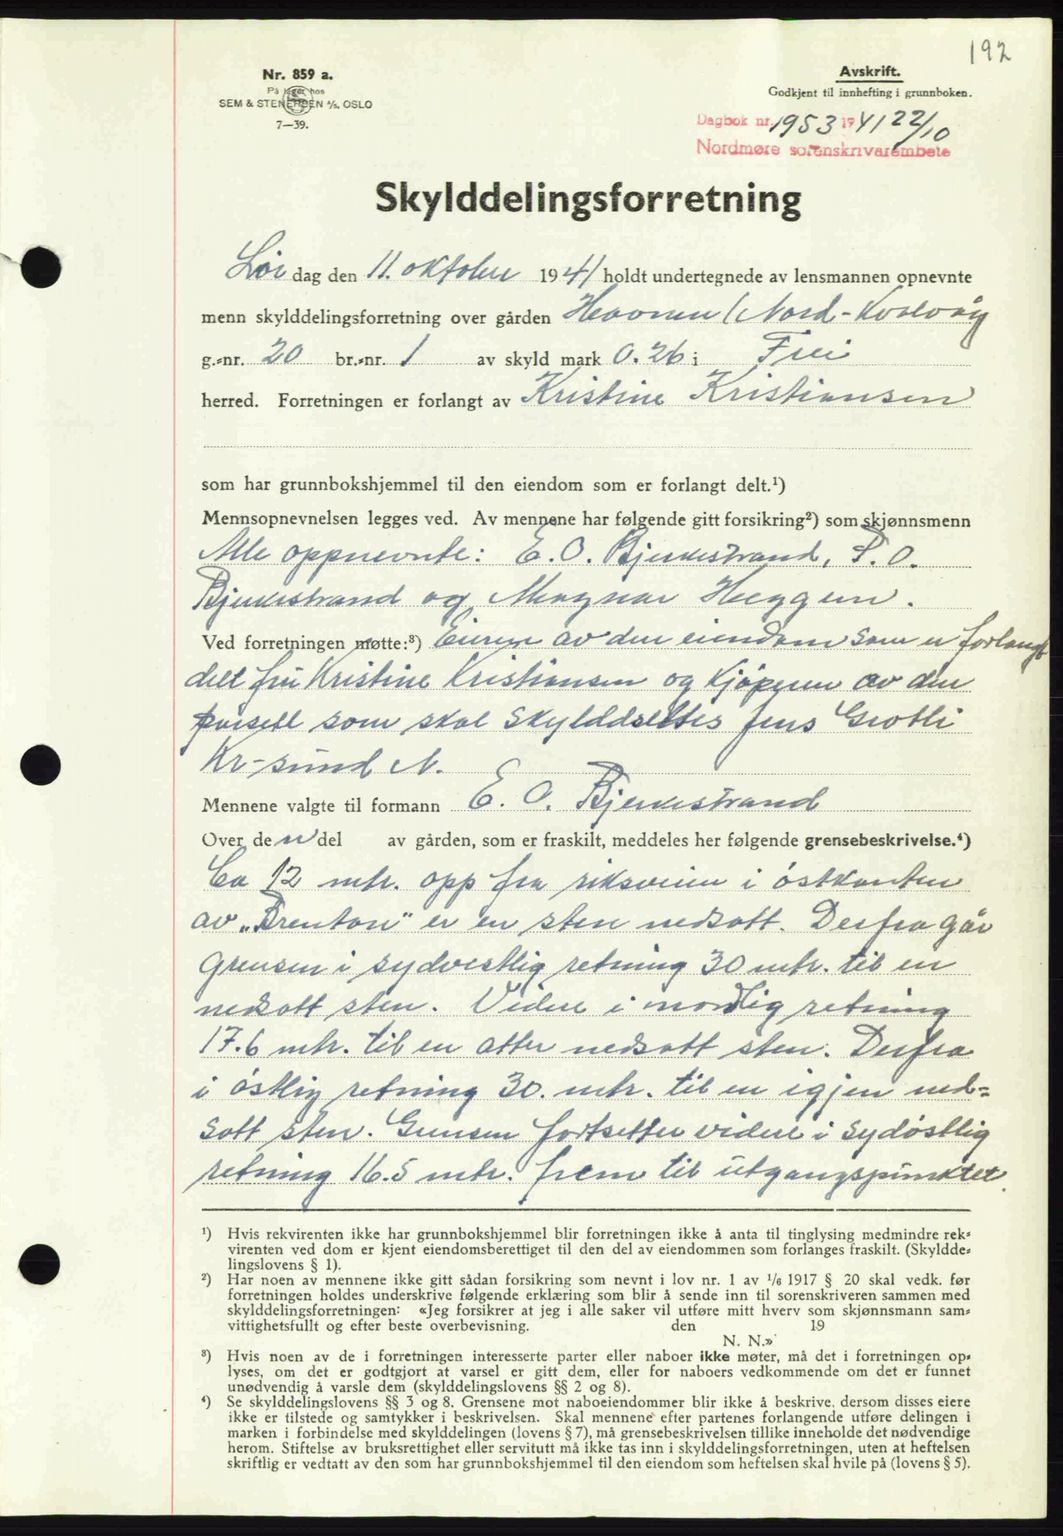 192
Nr. 859 a.
På lager hos
SEM & STENERSEN A/S, OSLO
7—39.
Avskrift.
Godkjent til innhefting i grunnboken.
Dagbok nr. 1953 1941 22/10
Nordmøre sorenskrivarembete
Skylddelingsforretning
Lør dag den 11. oktober 1941 holdt undertegnede av lensmannen opnevnte
menn skylddelingsforretning over gården (Nord-Kvalvåg
g.-nr. 20 br.-nr. 1 av skyld mark 0.26 i Frei
herred. Forretningen er forlangt av Kristine Kristiansen
som har grunnbokshjemmel til den eiendom som er forlangt delt.¹)
Mennsopnevnelsen legges ved. Av mennene har følgende gitt forsikring²) som skjønnsmenn
Alle oppnevnte: E. O. Bjerkestrand, P. O.
Bjerkestrand og Magnar Heggem.
Ved forretningen møtte:³) Eieren av den eiendom som er forlangt
delt fru Kristine Kristiansen og kjøperen av den
parsell som skal skylddeltes Jens Grotli
Kr-sund N.
Mennene valgte til formann E. O. Bjerkestrand
Over de n del av gården, som er fraskilt, meddeles her følgende grensebeskrivelse.⁴)
Ca 12 mtr. opp fra riksveien i östkanten
av „Brenton" er en sten nedsatt. Derfra går
grensen i sydvestlig retning 30 mtr. til en
nedsatt sten. Videre i nordlig retning
17.6 mtr. til en atter nedsatt sten. Derfra
i östlig retning 30. mtr. til en igjen ned=
satt sten. Grensen fortsetter videre i sydöstlig
retning 16.5 mtr. frem til utgangspunktet.
¹) Hvis rekvirenten ikke har grunnbokshjemmel blir forretningen ikke å anta til tinglysing medmindre rek-
virenten ved dom er kjent eiendomsberettiget til den del av eiendommen som forlanges fraskilt. (Skyldde-
lingslovens § 1).
²) Har noen av mennene ikke gitt sådan forsikring som nevnt i lov nr. 1 av 1/6 1917 § 20 skal vedk. før
forretningen holdes underskrive følgende erklæring som blir å sende inn til sorenskriveren sammen med
skylddelingsforretningen: «Jeg forsikrer at jeg i alle saker vil utføre mitt hverv som skjønnsmann sam-
vittighetsfullt og efter beste overbevisning. den 19
N. N.»
³) Hvis noen av de i forretningen interesserte parter eller naboer ikke møter, må det i forretningen op-
lyses, om det er godtgjort at varsel er gitt dem, eller for naboers vedkommende om det er funnet
unødvendig å varsle dem (skylddelingslovens §§ 2 og 8).
⁴) Se skylddelingslovens §§ 3 og 8. Grensene mot naboeiendommer blir ikke å beskrive, dersom disses eiere
ikke er tilstede og samtykker i beskrivelsen. Skal mennene efter partenes forlangende utføre delingen i
marken i forbindelse med skylddelingen (lovens § 7), må grensebeskrivelsen tillike inneholde det nødvendige
herom. Stiftelse av bruksrettighet eller servitutt må ikke tas inn i skylddelingsforretningen, uten at heftelsen
skriftlig er vedtatt av den som har grunnbokshjemmel til den eiendom som heftelsen skal hvile på (lovens § 5).